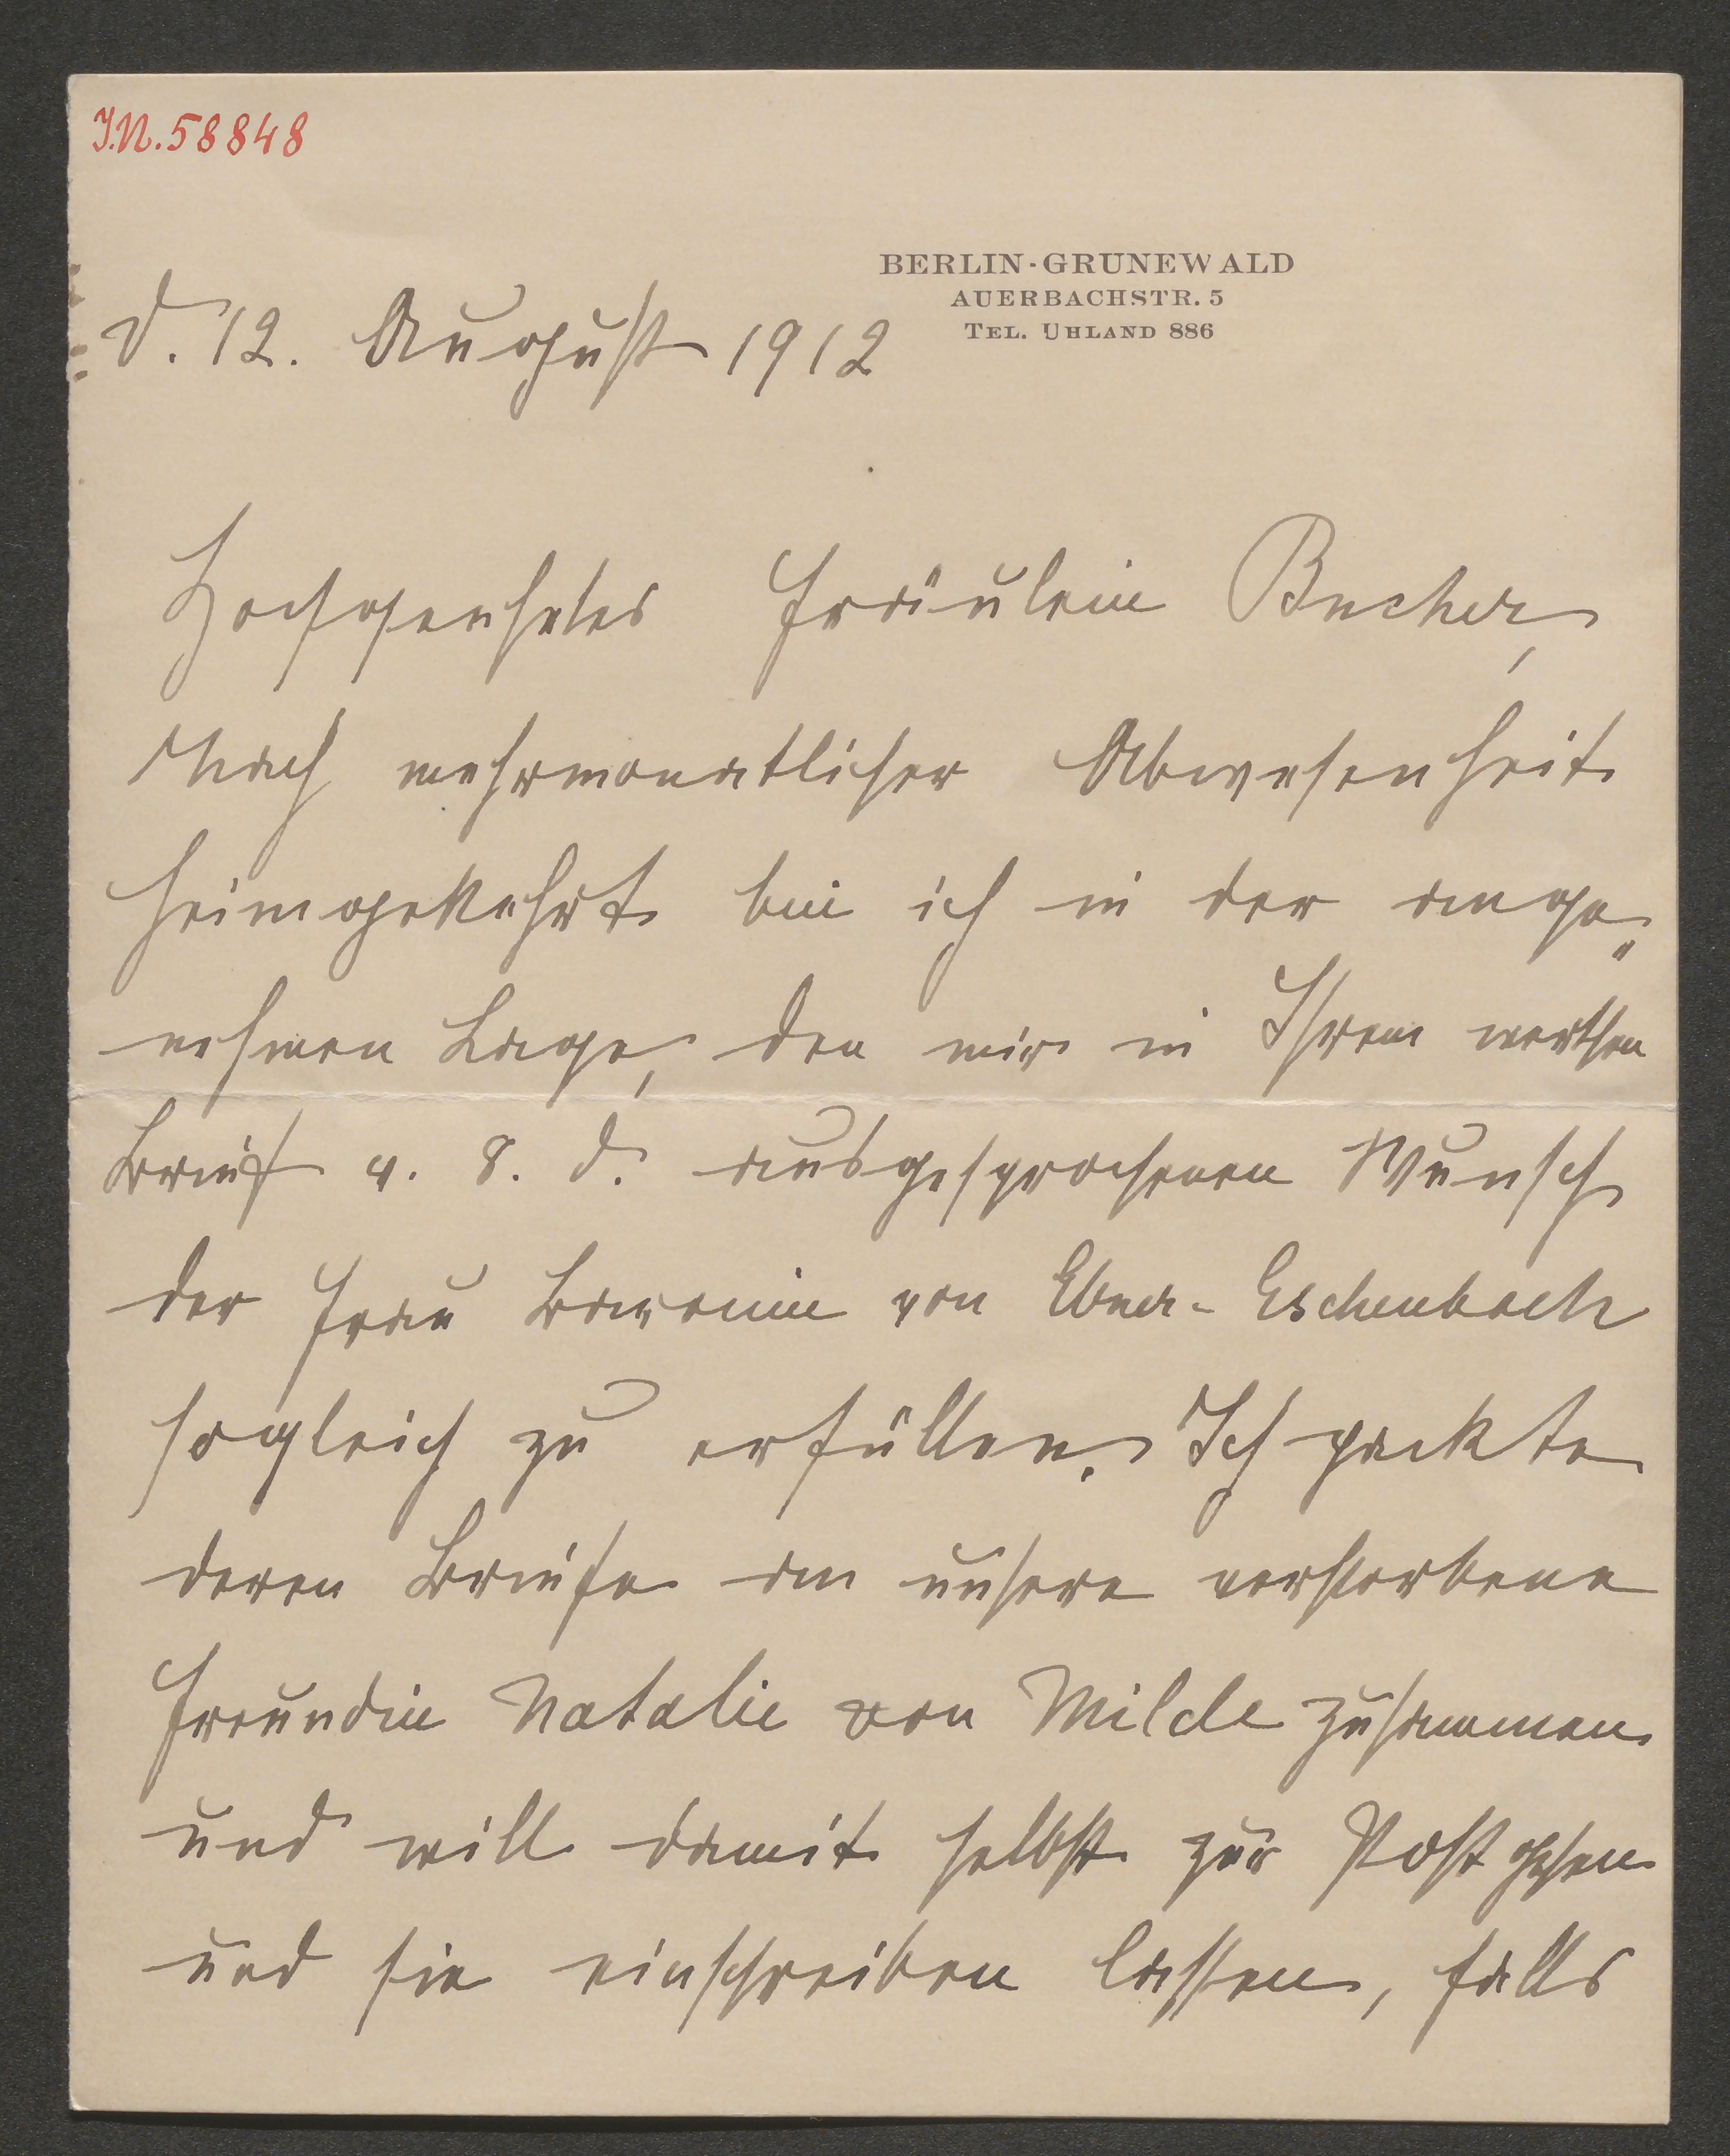 I.N. 58848
BERLIN-GRUNEWALD
AUERBACHSTR. 5
TEL. UHLAND 886
d. 12. August 1912
Hochgeehrtes Fräulein Bucher,
Nach mehrmonatlicher Abwesenheit
heimgekehrt bin ich in der ange„
nehmen Lage, den mir in Ihrem werthen
Brief v. 8. d. ausgesprochenen Wunsch
der Frau Baronin von Ebner-Eschenbach
sogleich zu erfüllen. Ich packte
deren Briefe an unsere verstorbene
Freundin Natalie von Milde zusammen
und will damit selbst zur Post gehen
und sie einschreiben lassen, falls